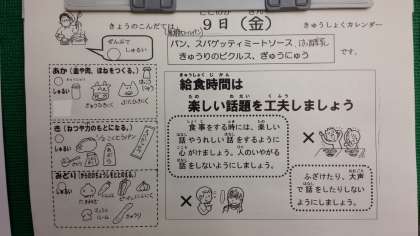 きょうのこんだては
9日(金)
ここのか
きん
きゅうしょくカレンダー
ぜんぶで
しゅるい
パン、スパゲッティミートソース
きゅうりのピクルス、ぎゅうにゅう
です。
あか
しゅるい
ぎゅうにゅう
ぶたひきにく
き(ねつや力のもとになる。)
しゅるい
みどり
しゅるい
きゅうり
きゅうしょくじかん
給食時間は
楽しい話題を工夫しましょう
食事をする時には、楽しい
話やうれしい話をするように
心がけましょう。人のいやがる
話をしないようにしましょう。
ふざけたり、大声
で話をしたりしない
ようにしましょう。